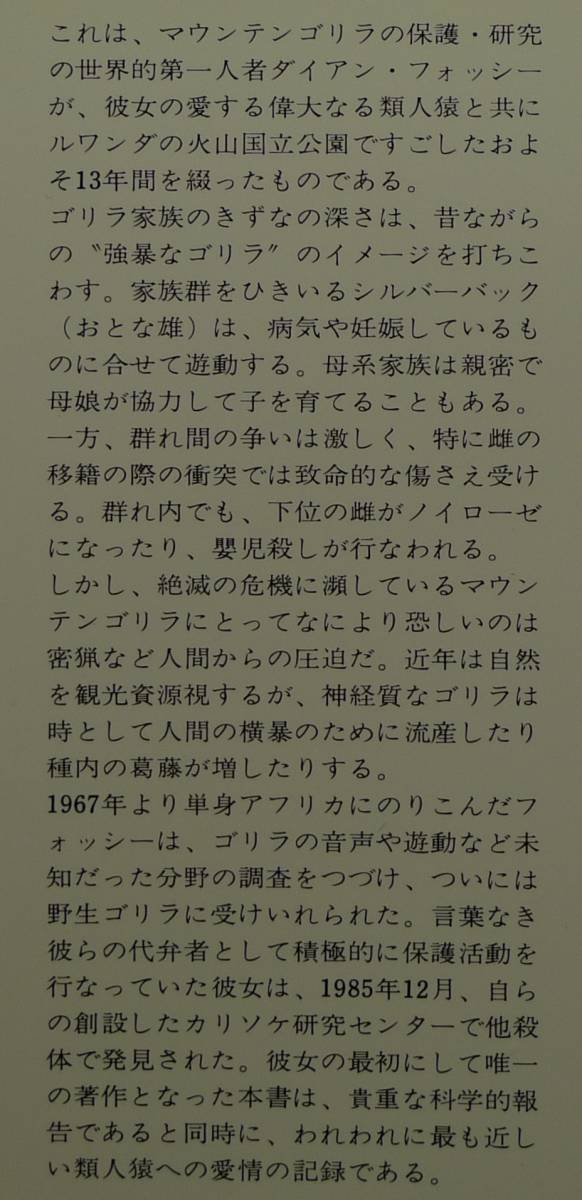 これは、マウンテンゴリラの保護・研究
の世界的第一人者ダイアン・フォッシー
が、彼女の愛する偉大なる類人猿と共に
ルワンダの火山国立公園ですごしたおよ
そ13年間を綴ったものである。
ゴリラ家族のきずなの深さは、昔ながら
の〝強暴なゴリラ〟のイメージを打ちこ
わす。家族群をひきいるシルバーバック
（おとな雄）は、病気や妊娠しているも
のに合せて遊動する。母系家族は親密で
母娘が協力して子を育てることもある。
一方、群れ間の争いは激しく、特に雌の
移籍の際の衝突では致命的な傷さえ受け
る。群れ内でも、下位の雌がノイローゼ
になったり、嬰児殺しが行なわれる。
しかし、絶滅の危機に瀕しているマウン
テンゴリラにとってなにより恐しいのは
密猟など人間からの圧迫だ。近年は自然
を観光資源視するが、神経質なゴリラは
時として人間の横暴のために流産したり
種内の葛藤が増したりする。
1967年より単身アフリカにのりこんだフ
ォッシーは、ゴリラの音声や遊動など未
知だった分野の調査をつづけ、ついには
野生ゴリラに受けいれられた。言葉なき
彼らの代弁者として積極的に保護活動を
行なっていた彼女は、1985年12月、自ら
の創設したカリソケ研究センターで他殺
体で発見された。彼女の最初にして唯一
の著作となった本書は、貴重な科学的報
告であると同時に、われわれに最も近し
い類人猿への愛情の記録である。